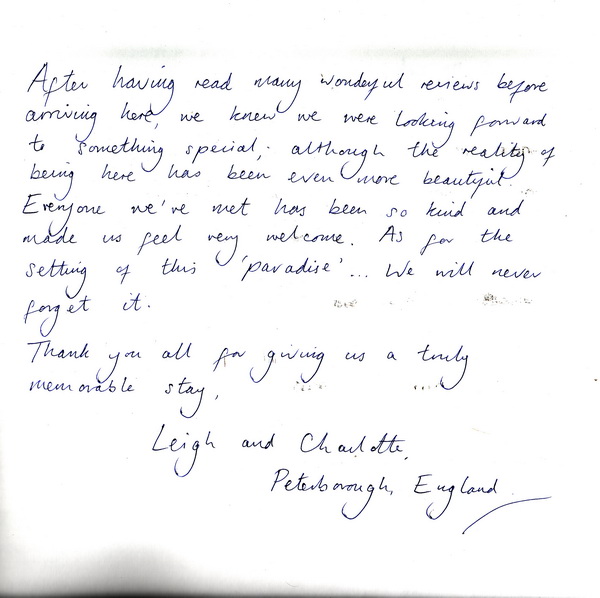 After having read many wonderful reviews before
arriving here, we knew we were looking forward
to something special; although the reality of
being here has been even more beautiful.
Everyone we've met has been so kind and
made us feel very welcome. As for the
setting of this 'paradise'... We will never
forget it.
Thank you all for giving us a truly
memorable stay,
Leigh and Charlotte,
Peterborough, England